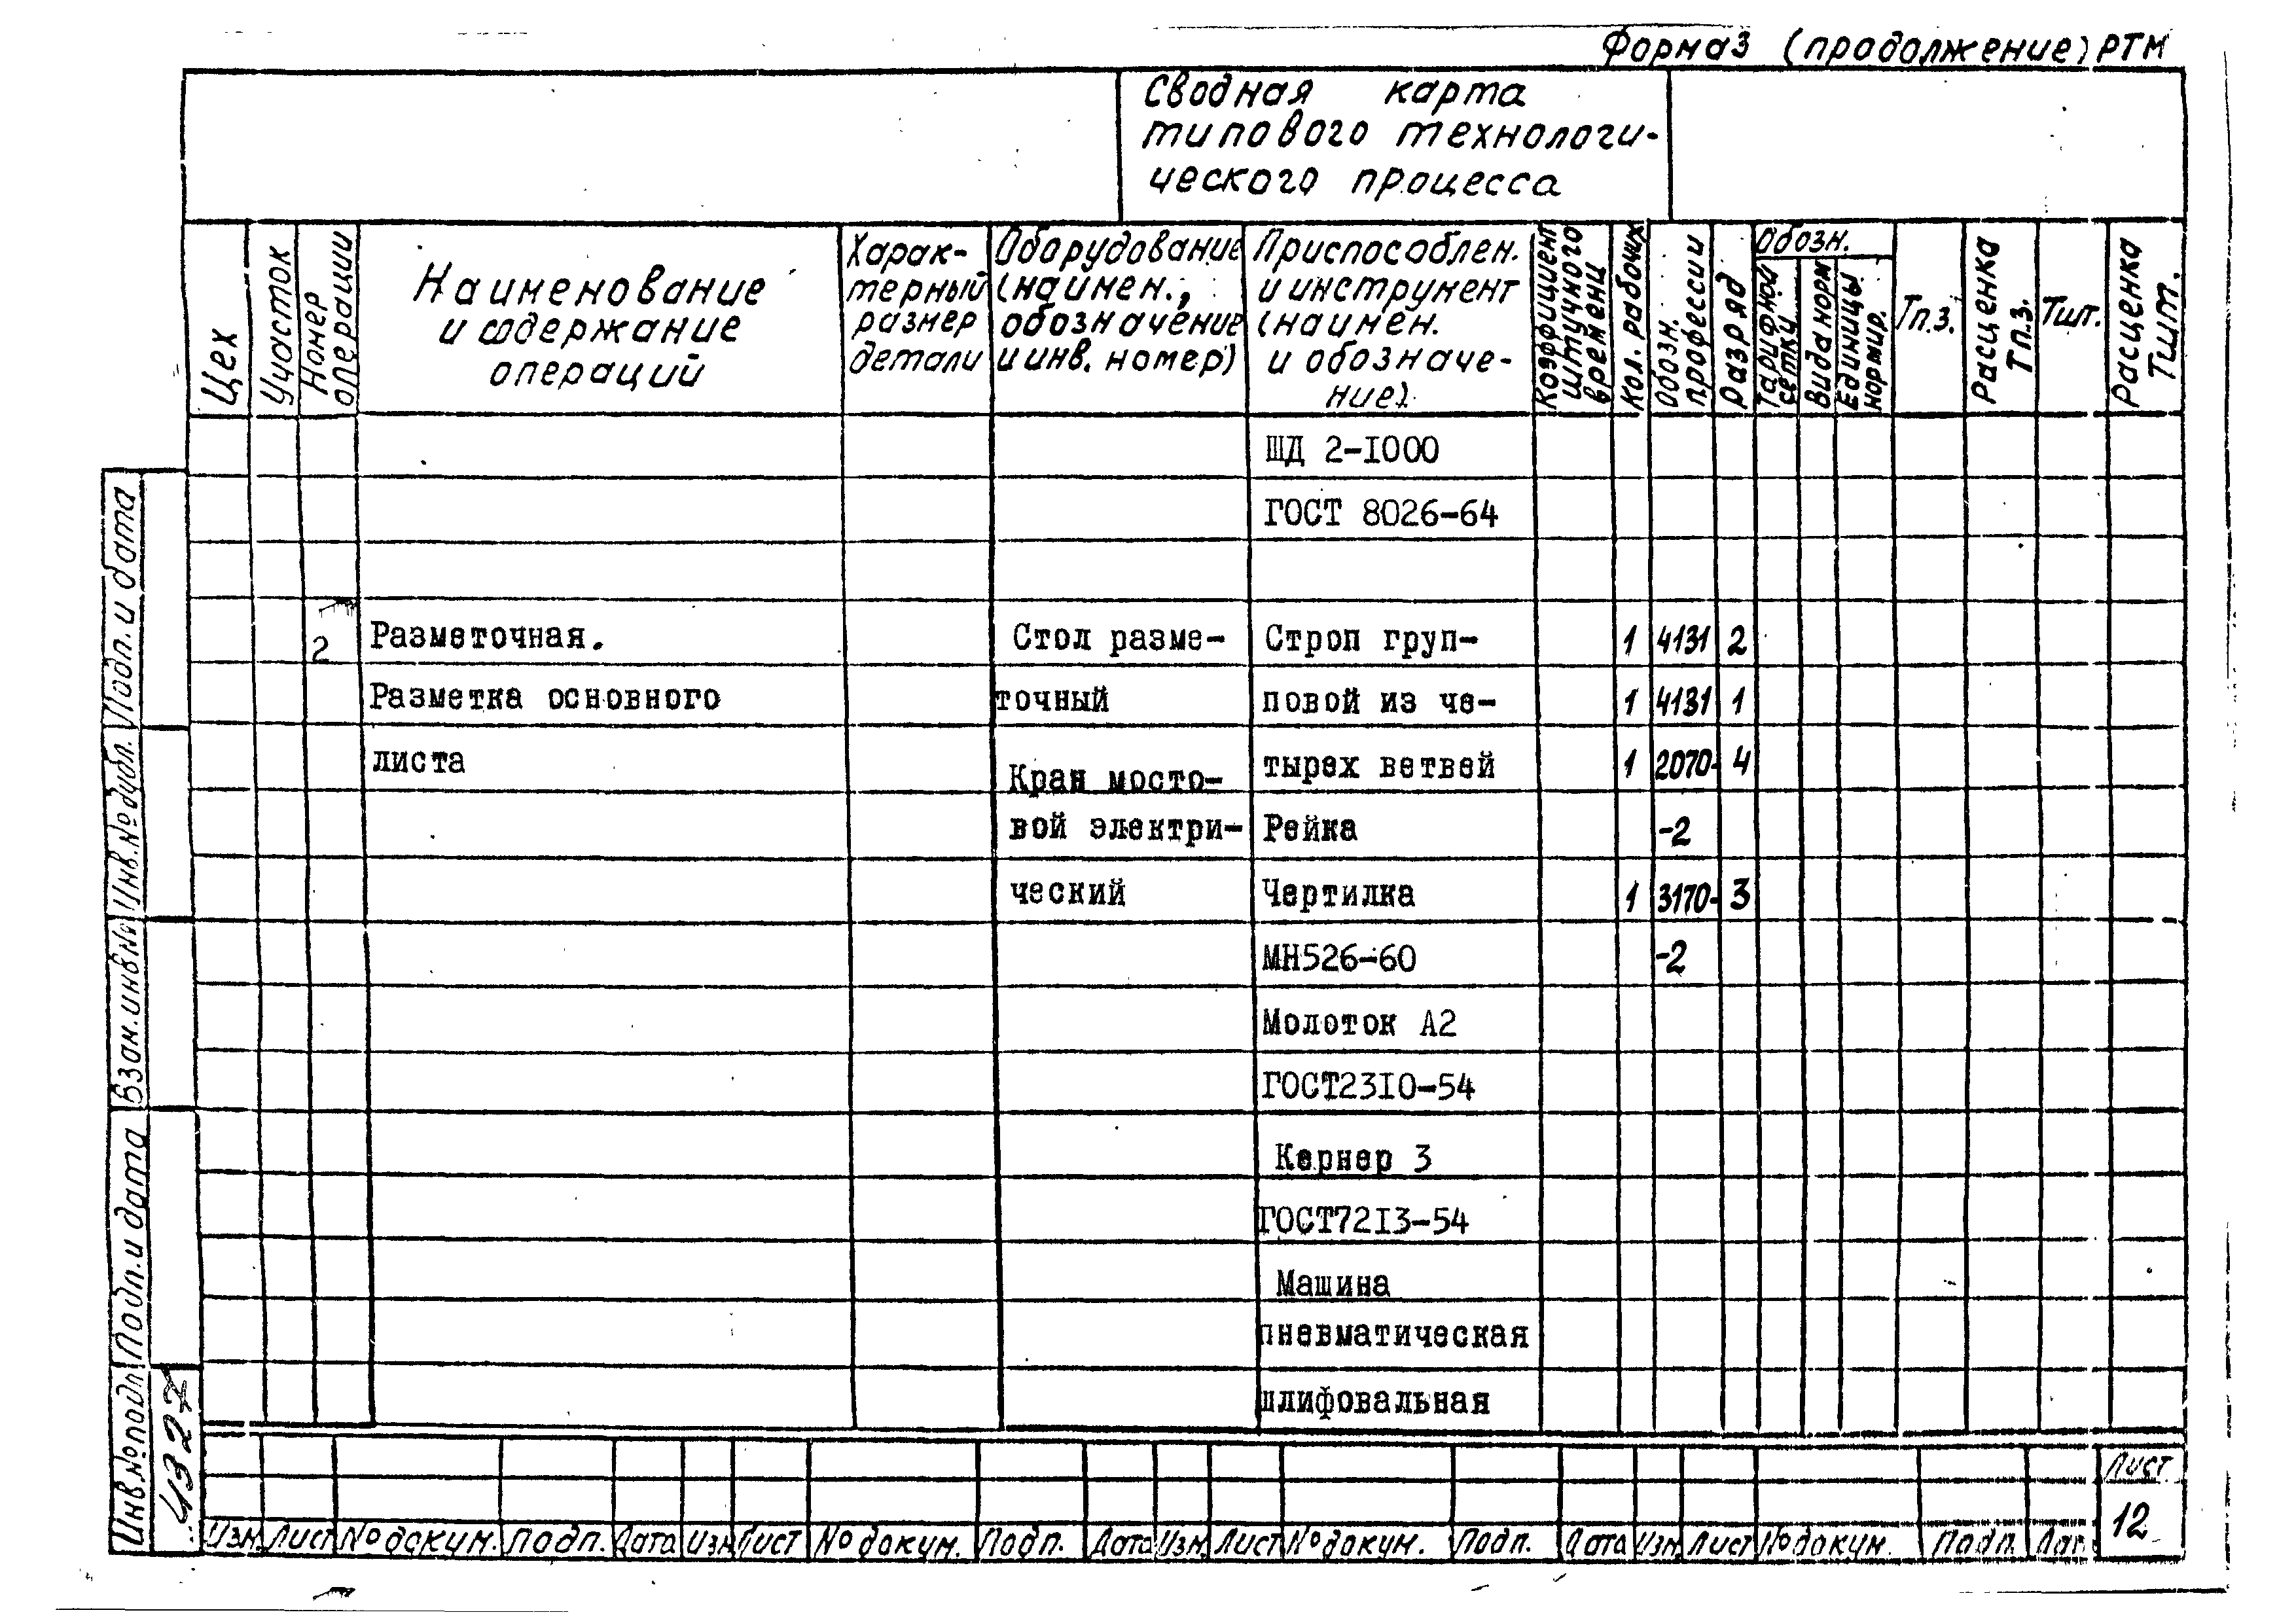 Форма3 (продолжение) РТМ
Сводная карта
типового технологи-
ческого процесса
Цех
Участок
Номер
операции
Наименование
и содержание
операций
Харак-
терный
размер
детали
Оборудование
(наимен.,
обозначение
и инв. номер)
Приспособлен.
и инструмент
(наимен.
и обозначе-
ние).
Коэффициент
штучного
времени
Кол. рабочих
Обозн.
профессии
Разряд
Обозн.
Тарифной
сетки
Вида норм
Единицы
нормир.
Тп.з.
Расценка
Тп.з.
Тшт.
Расценка
Тшт.
ШД 2-I000
ГОСТ 8026-64
2 Разметочная. Стол разме- Строп груп- 1 4131 2
Разметка основного точный повой из че- 1 4131 1
листа Кран мосто- тырех ветвей 1 2070- 4
вой электри- Рейка -2
ческий Чертилка 1 3170- 3
МН526-60 -2
Молоток А2
ГОСТ23I0-54
Кернер 3
ГОСТ72I3-54
Машина
пневматическая
шлифовальная
Подп. и дата
Инв.№дубл.
Взам.инв№
Подп. и дата
Инв.№подл
4327
Лист
12
Изм. Лист №докум. подп. Дата Изм Лист №докум. Подп. Дата Изм. Лист №докум. Подп. Дата Изм. Лист №докум. Подп. Дат.